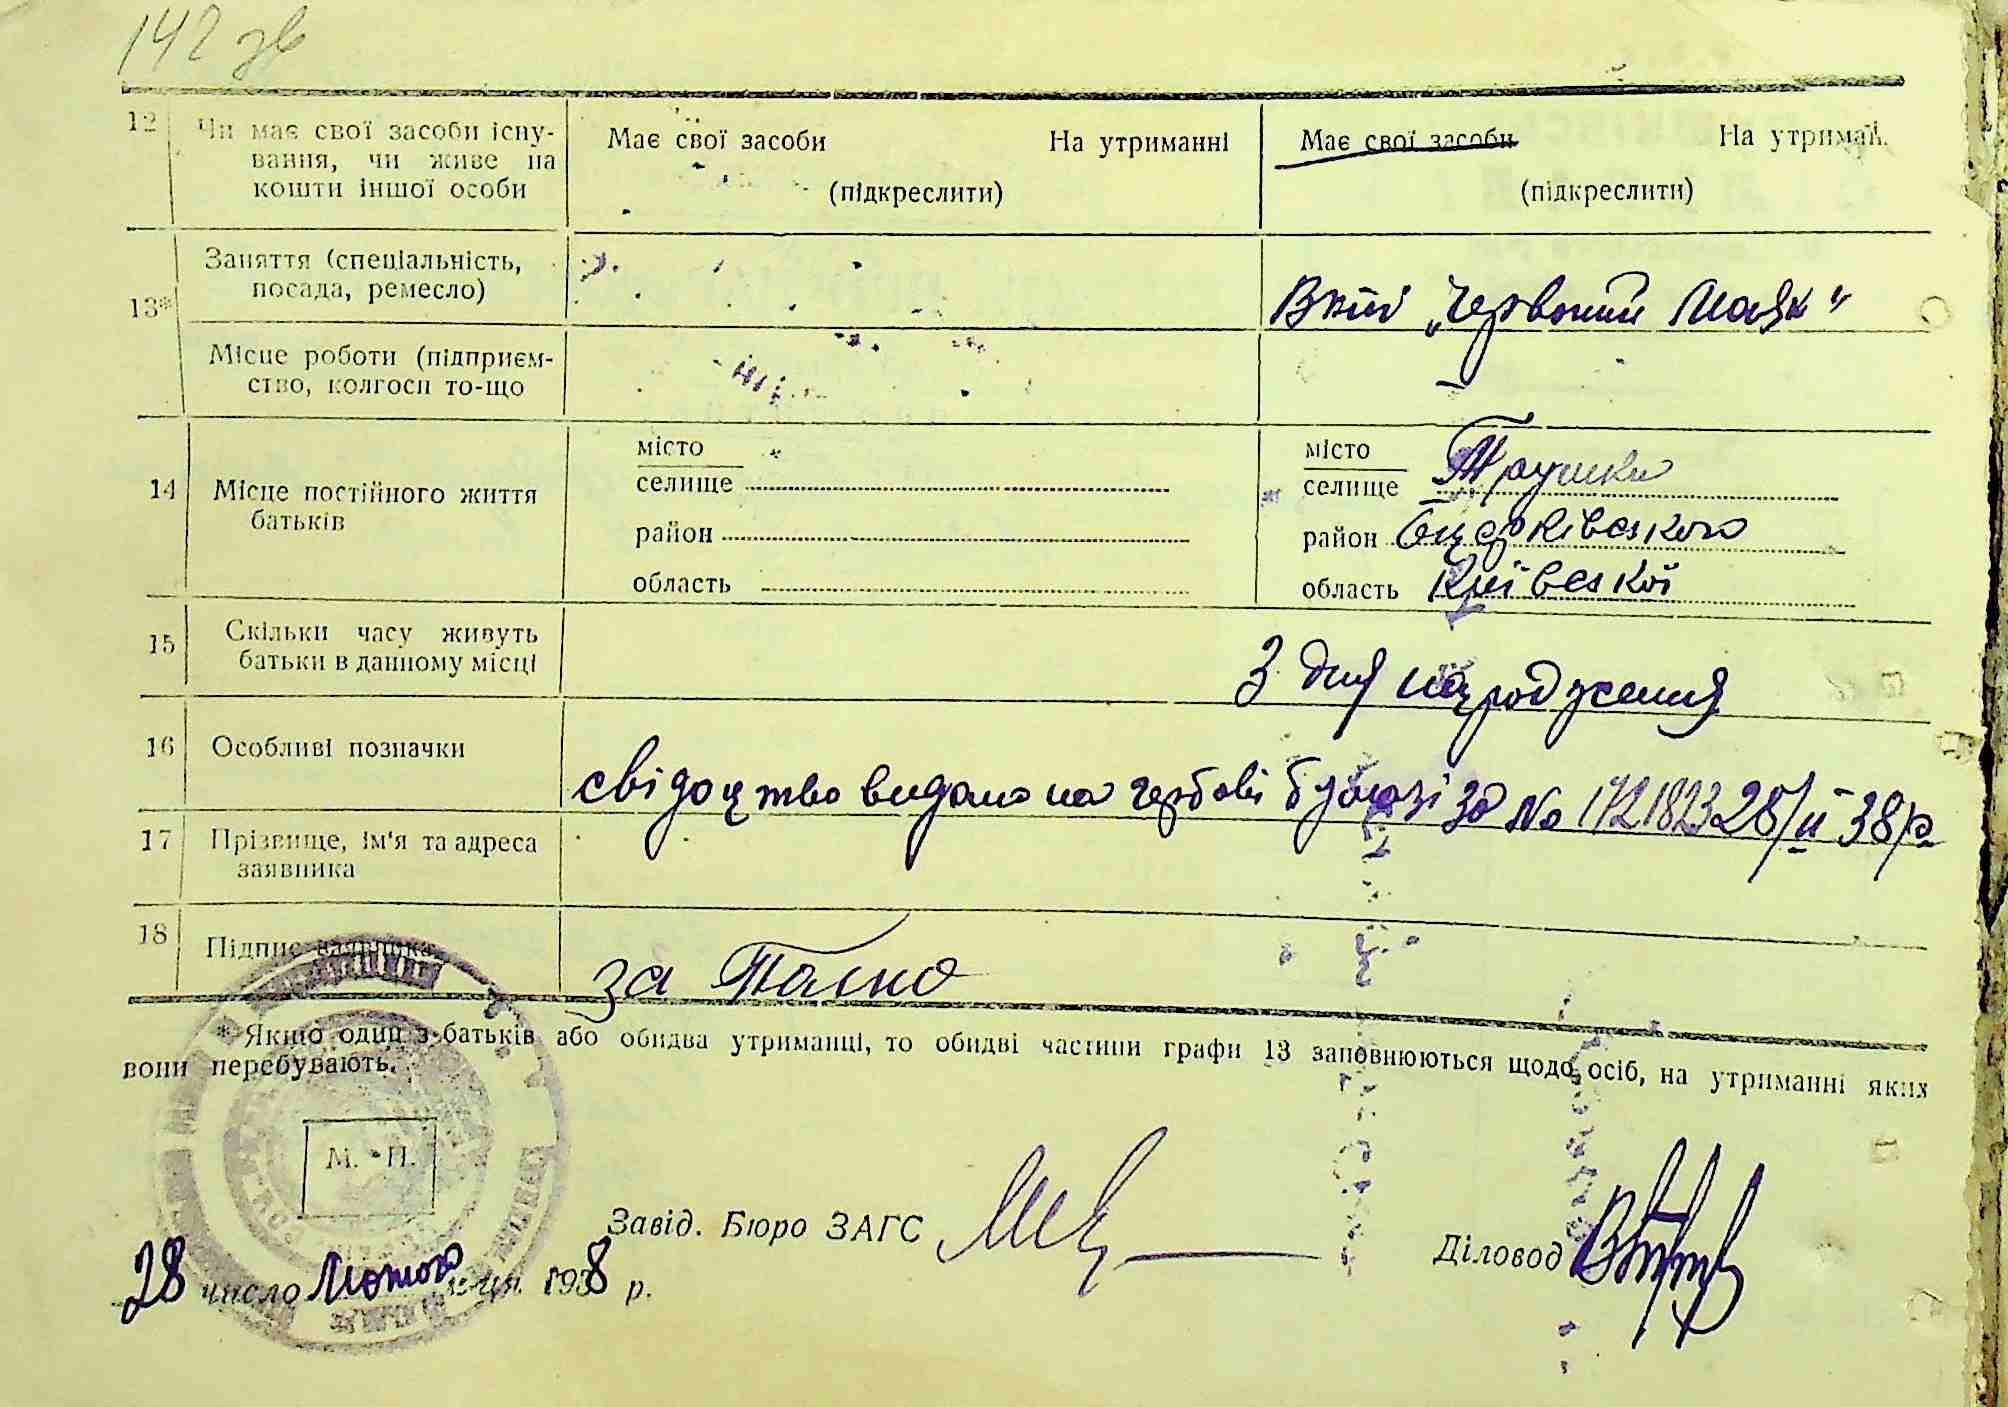 142 зв
12 Чи має свої засоби існу- Має свої засоби На утриманні Має свої засоби На утриман
вання, чи живе на
кошти іншої особи (підкреслити) (підкреслити)
13* Заняття (спеціальність,
посада, ремесло) "Червоний Маяк"
Місце роботи (підприєм-
ство, колгосп то-що
14 Місце постійного життя
батьків
місто місто
селище селище Трушки
район район Бцерківського
область область Київської
15 Скільки часу живуть
батьки в данному місці З дня народження
16 Особливі позначки свідоцтво видано на гербові бумазі за № 1721823 28/II 38 р
17 Прізвище, ім'я та адреса
заявника
18 Підпис заявника за
* Якщо один з батьків або обидва утриманці, то обидві частини графи 13 заповнюються щодо осіб, на утриманні яких
вони перебувають.
М. П.
Завід. Бюро ЗАГС Діловод
28 число Лютого м-ця 1938 р.